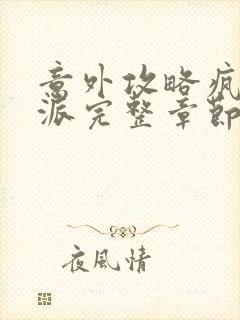 意外攻略疯
派完整章節
夜風情